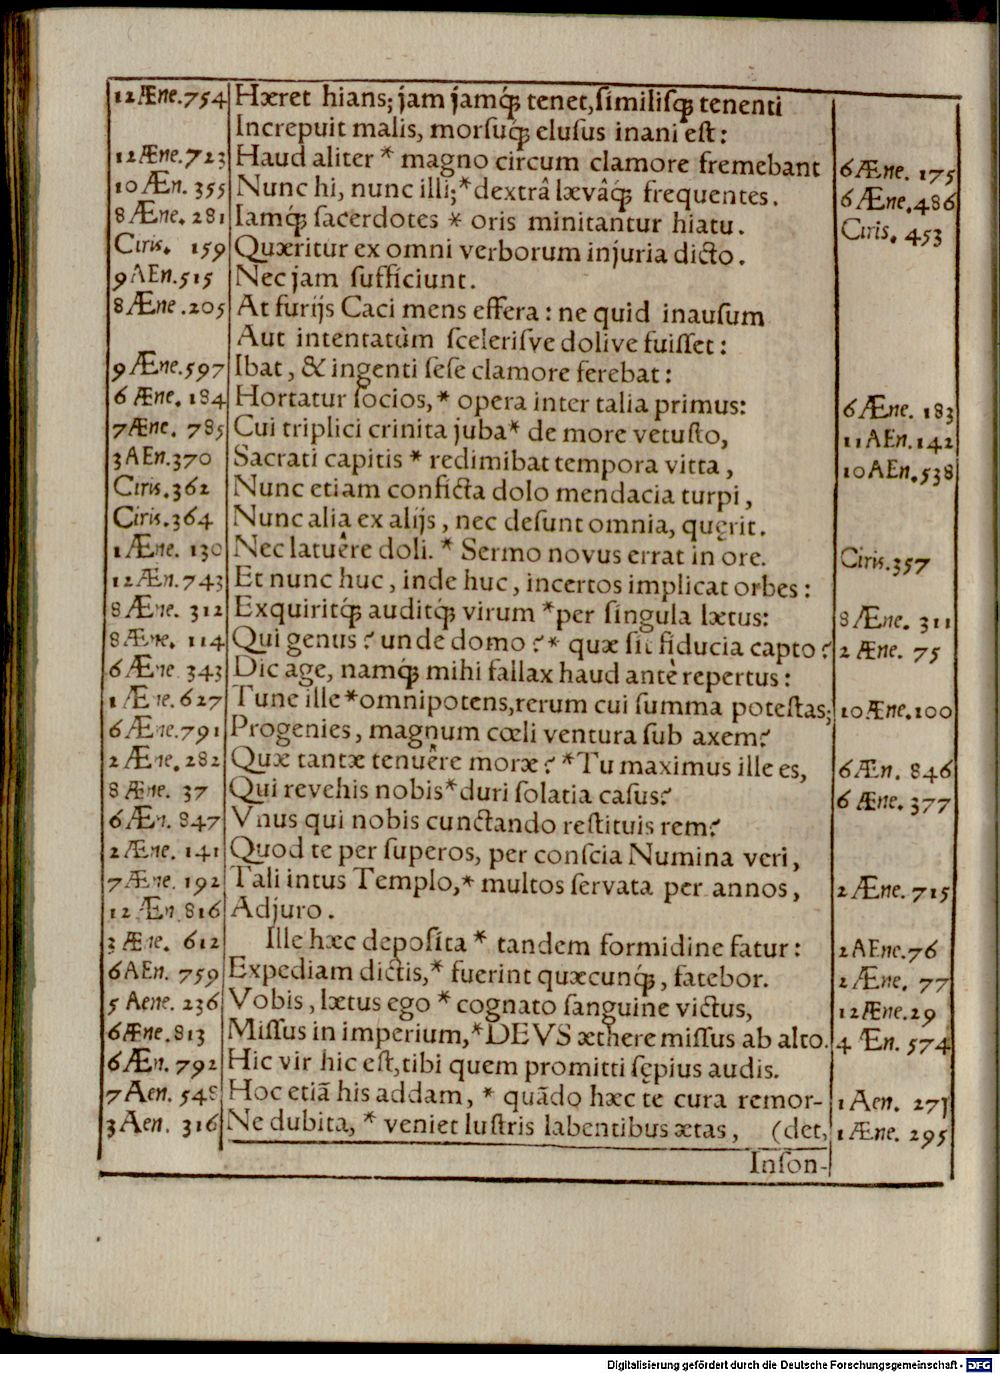 12Æne.754 Hæret hians; jam jamq́; tenet, ſimilisq́; tenenti
Increpuit malis, morſuq́; eluſus inani eſt:
12Æne.723 Haud aliter * magno circum clamore fremebant 6Æne. 175
10Æn. 355 Nunc hi, nunc illi;* dextrâ lævâq́; frequentes. 6Æne.486
8Æne. 281 Iamq́; ſacerdotes * oris minitantur hiatu. Ciris. 453
Ciris. 159 Quæritur ex omni verborum injuria dicto.
9AEn.515 Nec jam ſufficiunt.
8Æne.205 At furijs Caci mens effera: ne quid inauſum
Aut intentatùm ſceleriſve dolive fuiſſet:
9Æne.597 Ibat, & ingenti ſeſe clamore ferebat:
6 Æne. 184 Hortatur ſocios,* opera inter talia primus: 6Æne. 183
7Æne. 785 Cui triplici crinita juba* de more vetuſto, 11AEn.142
3AEn.370 Sacrati capitis * redimibat tempora vitta, 10AEn.538
Ciris.362 Nunc etiam conficta dolo mendacia turpi,
Ciris.364 Nunc alia ex alijs, nec deſunt omnia, quęrit.
1Æne. 130 Nec latuêre doli. * Sermo novus errat in ore. Ciris.357
12Æn.743 Et nunc huc, inde huc, incertos implicat orbes:
8Æne. 312 Exquiritq́; auditq́; virum * per ſingula lætus: 8Æne. 311
8Æne. 114 Qui genus? unde domo?* quæ ſit fiducia capto? 2 Æne. 75
6Æne 343 Dic age, namq́; mihi fallax haud antè repertus:
1Æne.627 Tunc ille *omnipotens, rerum cui ſumma poteſtas; 10Æne.100
6Æne.791 Progenies, magnum cœli ventura ſub axem?
2 Æne.282 Quæ tantæ tenuêre moræ? *Tu maximus ille es, 6Æn. 846
8 Æne. 37 Qui revehis nobis* duri ſolatia caſus? 6 Æne. 377
6Æn. 847 Vnus qui nobis cunctando reſtituis rem?
2Æne. 141 Quod te per ſuperos, per conſcia Numina veri,
7Æne. 192 Tali intus Templo,* multos ſervata per annos, 2Æne. 715
12 Æn 816 Adjuro.
3 Æne. 612 Ille hæc depoſita * tandem formidine fatur: 2AEne.76
6AEn. 759 Expediam dictis,* fuerint quæcunq́;, fatebor. 2 Æne. 77
5 Aene. 236 Vobis, lætus ego * cognato ſanguine victus, 12Æne.29
6Æne.813 Miſſus in imperium,* DEVS æthere miſſus ab alto. 4 Æn. 574
6Æn. 792 Hic vir hic eſt, tibi quem promitti ſępius audis.
7 Aen. 548 Hoc etiã his addam, * quãdo hæc te cura remor- 1Aen. 271
3Aen. 316 Ne dubita, * veniet luſtris labentibus ætas, (det, 1Æne. 295
Inſon-
Digitalisierung gefördert durch die Deutsche Forschungsgemeinschaft - DFG